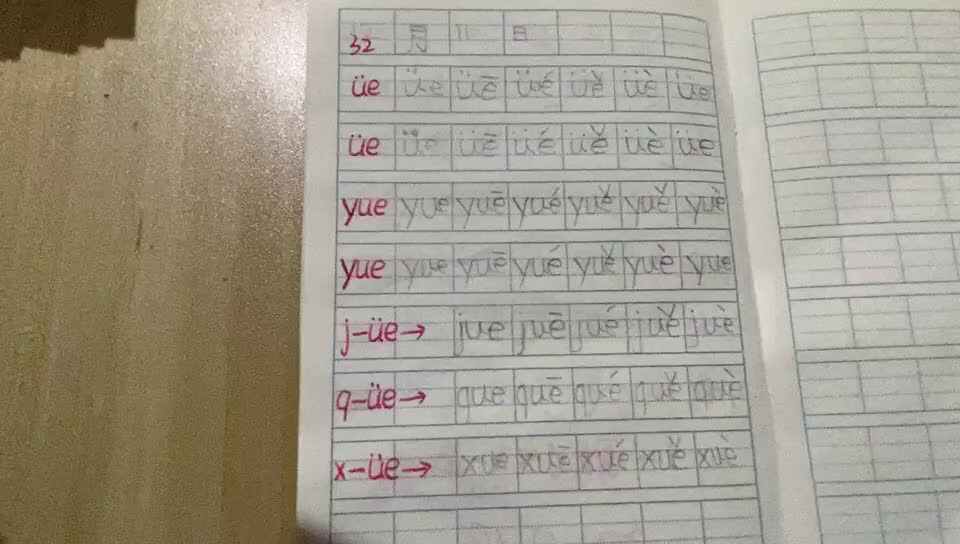 32 月 11 日
üe üe üē üé üě üè üe
üe üe üē üé üě üè üe
yue yue yuē yué yuě yuě yuè
yue yue yuē yué yuě yuè yue
j-üe→ jue juē jué juě juè
q-üe→ que quē qué quě què
x-üe→ xue xuē xué xuě xuè